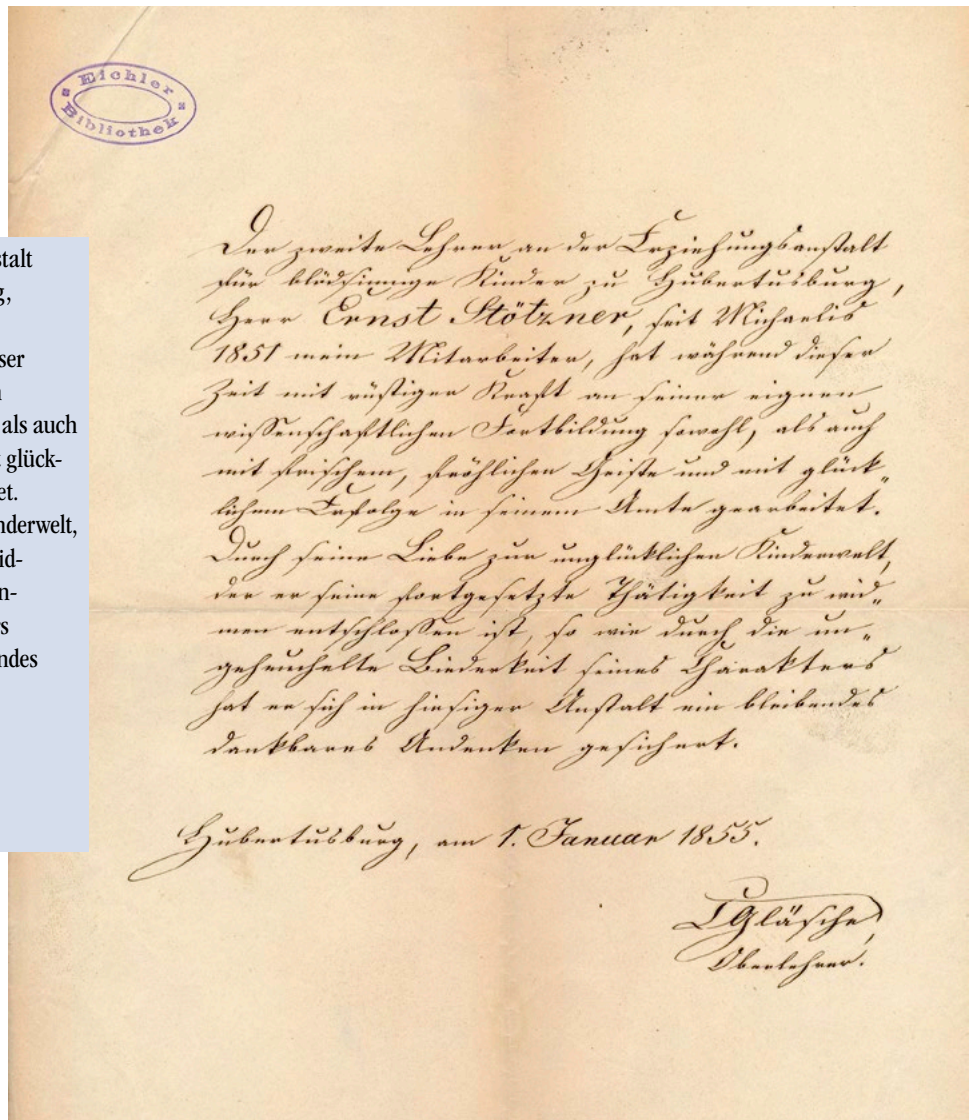 Eichler
Bibliothek
Der zweite Lehrer an der Erziehungsanstalt
für blödsinnige Kinder zu Hubertusburg,
Herr Ernst Stötzner, seit Michaelis
1851 mein Mitarbeiter, hat während dieser
Zeit mit rüstiger Kraft an seiner eignen
wissenschaftlichen Fortbildung sowohl, als auch
mit frischem, fröhlichen Geiste und mit glück-
lichem Erfolge in seinem Amte gearbeitet.
Durch seine Liebe zur unglücklichen Kinderwelt,
der er seine fortgesetzte Thätigkeit zu wid-
men entschlossen ist, so wie durch die un-
geheuchelte Biederkeit seines Charakters
hat er sich in hiesiger Anstalt ein bleibendes
dankbares Andenken gesichert.
Hubertusburg, am 1. Januar 1855.
Gläsche,
Oberlehrer.
stalt
g,
ser
n
als auch
glück-
et.
nderwelt,
id-
n-
rs
ndes